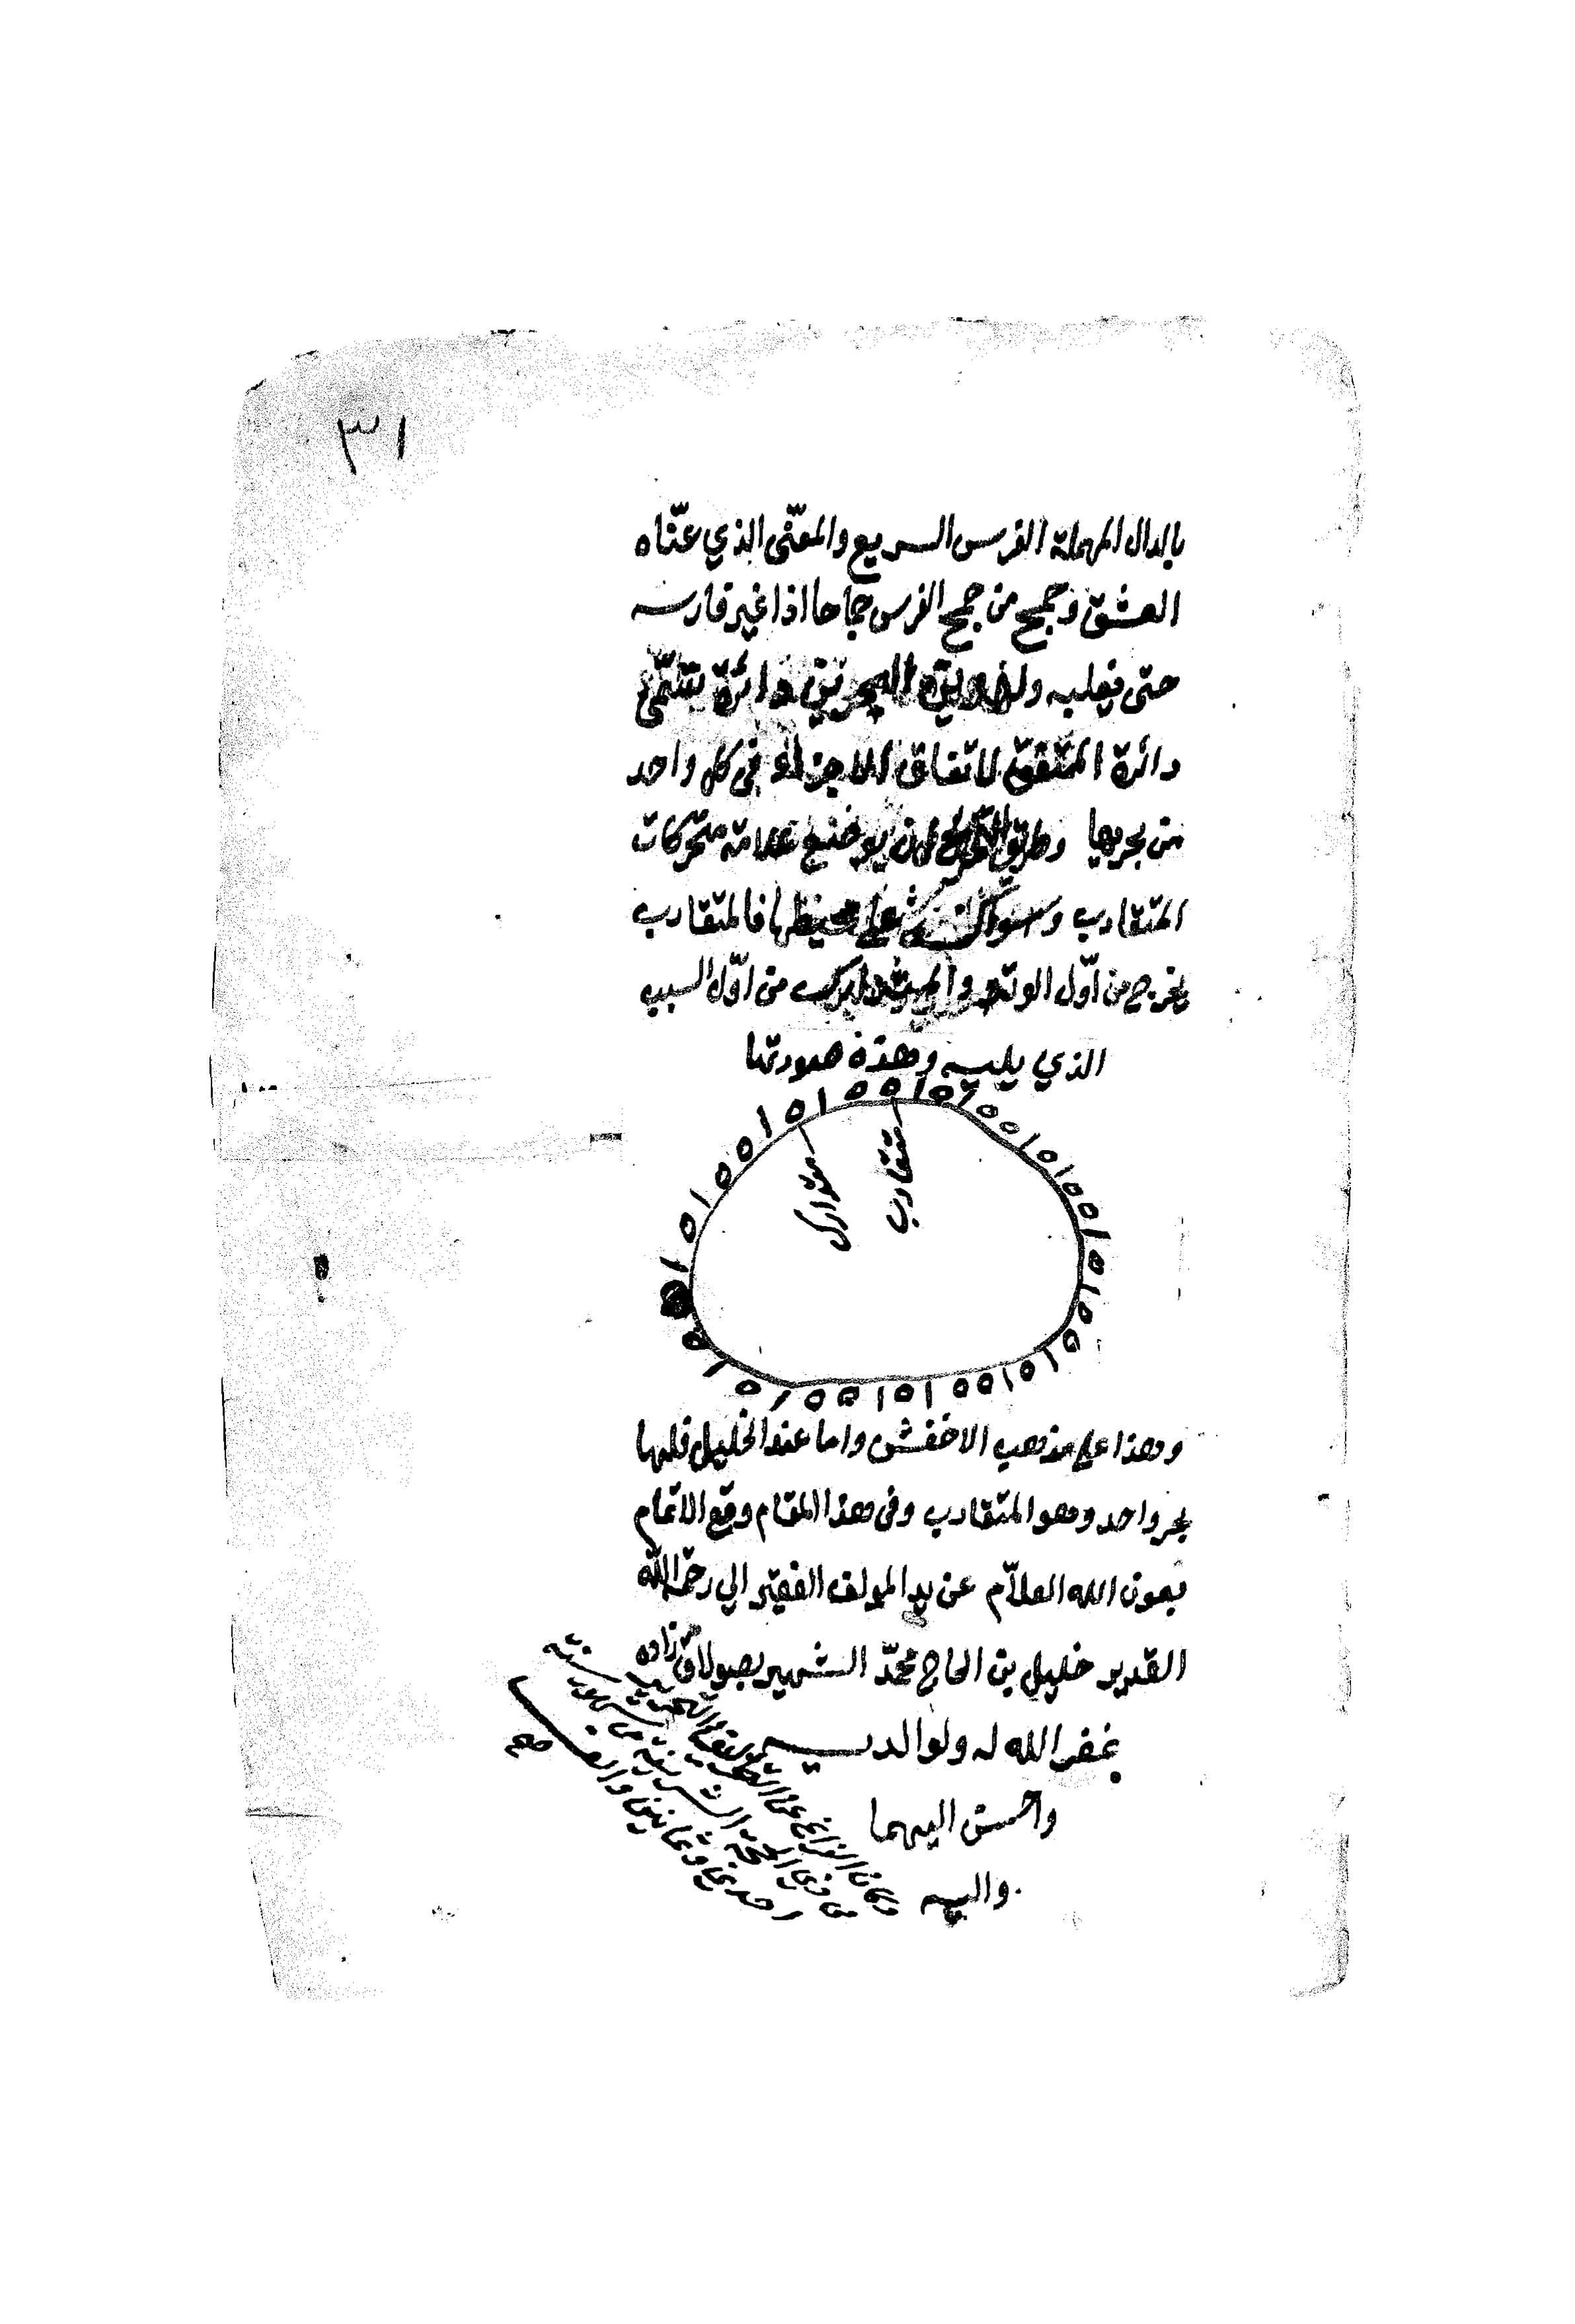 ٣١
بالدال المهملة الفرس السريع والمعنّى الذي عنّاه
العشق وجمح من جمح الفرس جماحا اذا غير فارسه
حتى يغلبه ولهذين البحرين دائرة تسمّى
دائرة المتفق لاتفاق الاجزاء في كل واحد
من بحريها وطريق ان يوضع علامة متحركات
المتقارب وسواكنه على محيطها فالمتقارب
يخرج من اوّل الوتد والمتدارك من اوّل السبب
الذي يليه وهذه صورتها
متقارب
متدارك
وهذا على مذهب الاخفش واما عند الخليل فلها
بحر واحد وهو المتقارب وفى هذا المقام وقع الاتمام
بعون الله العلاّم عن يد المولف الفقير الي رحمة الله
القدير خليل بن الحاج محمّد الشهير بصولاق زاده
غفر الله له ولوالديه
واحسن اليهما
واليه
وكان الفراغ عن
من ذي الحجة الشريفة من شهور سنة
احد وثمانين والف
صح